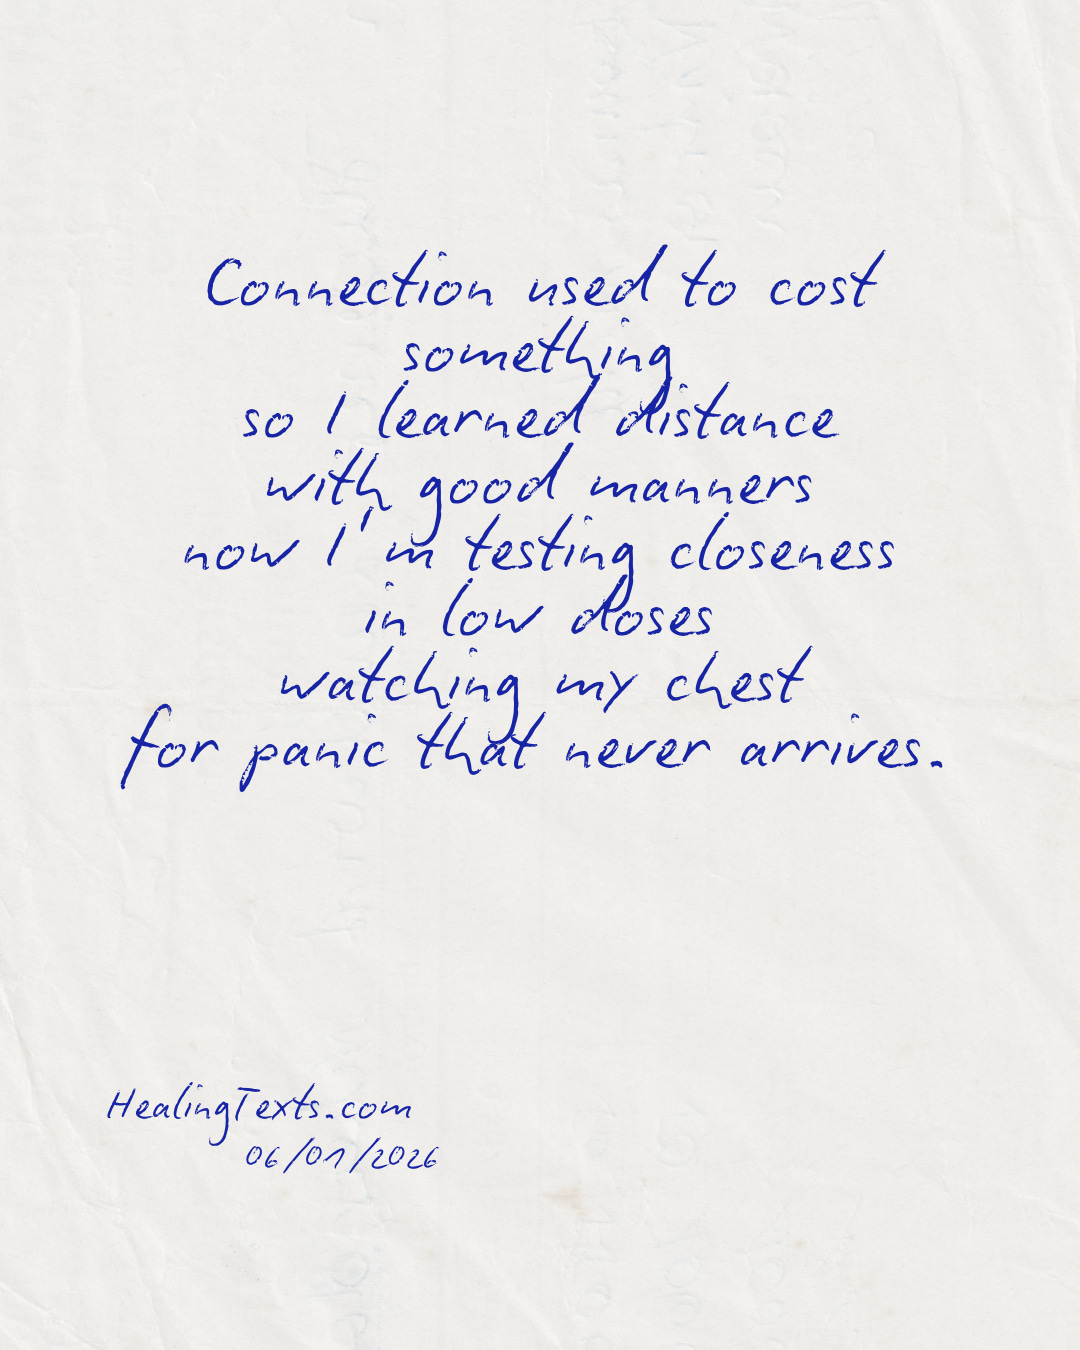 Connection used to cost
something
so I learned distance
with good manners
now I'm testing closeness
in low doses
watching my chest
for panic that never arrives.
HealingTexts.com
06/01/2026